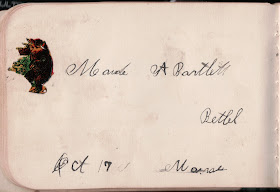 A Bartlett
Bethel
Oct 17 Maine